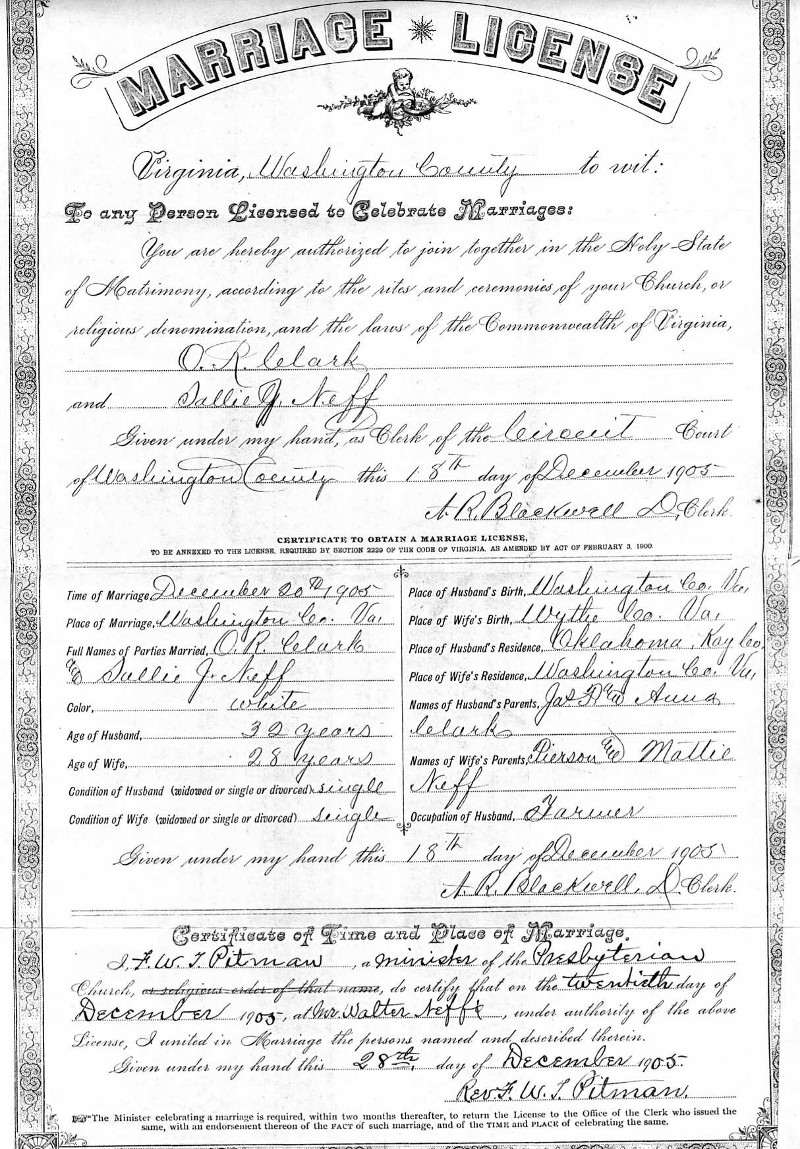 MARRIAGE LICENSE
Virginia, Washington County to wit:
To any Person Licensed to Celebrate Marriages:
You are hereby authorized to join together in the Holy State
of Matrimony, according to the rites and ceremonies of your Church, or
religious denomination, and the laws of the Commonwealth of Virginia,
O. R. Clark
and Sallie J. Neff
Given under my hand, as Clerk of the Circuit Court
of Washington County this 18th day of December 1905
A. R. Blackwell D. Clerk.
CERTIFICATE TO OBTAIN A MARRIAGE LICENSE,
TO BE ANNEXED TO THE LICENSE, REQUIRED BY SECTION 2229 OF THE CODE OF VIRGINIA, AS AMENDED BY ACT OF FEBRUARY 3, 1900.
Time of Marriage, December 20th 1905
Place of Marriage, Washington Co. Va,
Full Names of Parties Married, O. R. Clark
and Sallie J. Neff
Color, white
Age of Husband, 32 years
Age of Wife, 28 years
Condition of Husband (widowed or single or divorced) single
Condition of Wife (widowed or single or divorced) single
Place of Husband's Birth, Washington Co. Va,
Place of Wife's Birth, Wythe Co. Va,
Place of Husband's Residence, Oklahoma, Kay Co.
Place of Wife's Residence, Washington Co. Va,
Names of Husband's Parents, Jas R and Anna
Clark
Names of Wife's Parents, Pierson and Mattie
Neff
Occupation of Husband, Farmer
Given under my hand this 18th day of December 1905
A. R. Blackwell, D. Clerk.
Certificate of Time and Place of Marriage.
I, F. W. T. Pitman, a minister of the Presbyterian
Church, or religious order of that name, do certify that on the twentieth day of
December 1905, at Mr. Walter Neff's, under authority of the above
License, I united in Marriage the persons named and described therein.
Given under my hand this 28th, day of December 1905.
Rev. F. W. T. Pitman.
The Minister celebrating a marriage is required, within two months thereafter, to return the License to the Office of the Clerk who issued the
same, with an endorsement thereon of the FACT of such marriage, and of the TIME and PLACE of celebrating the same.